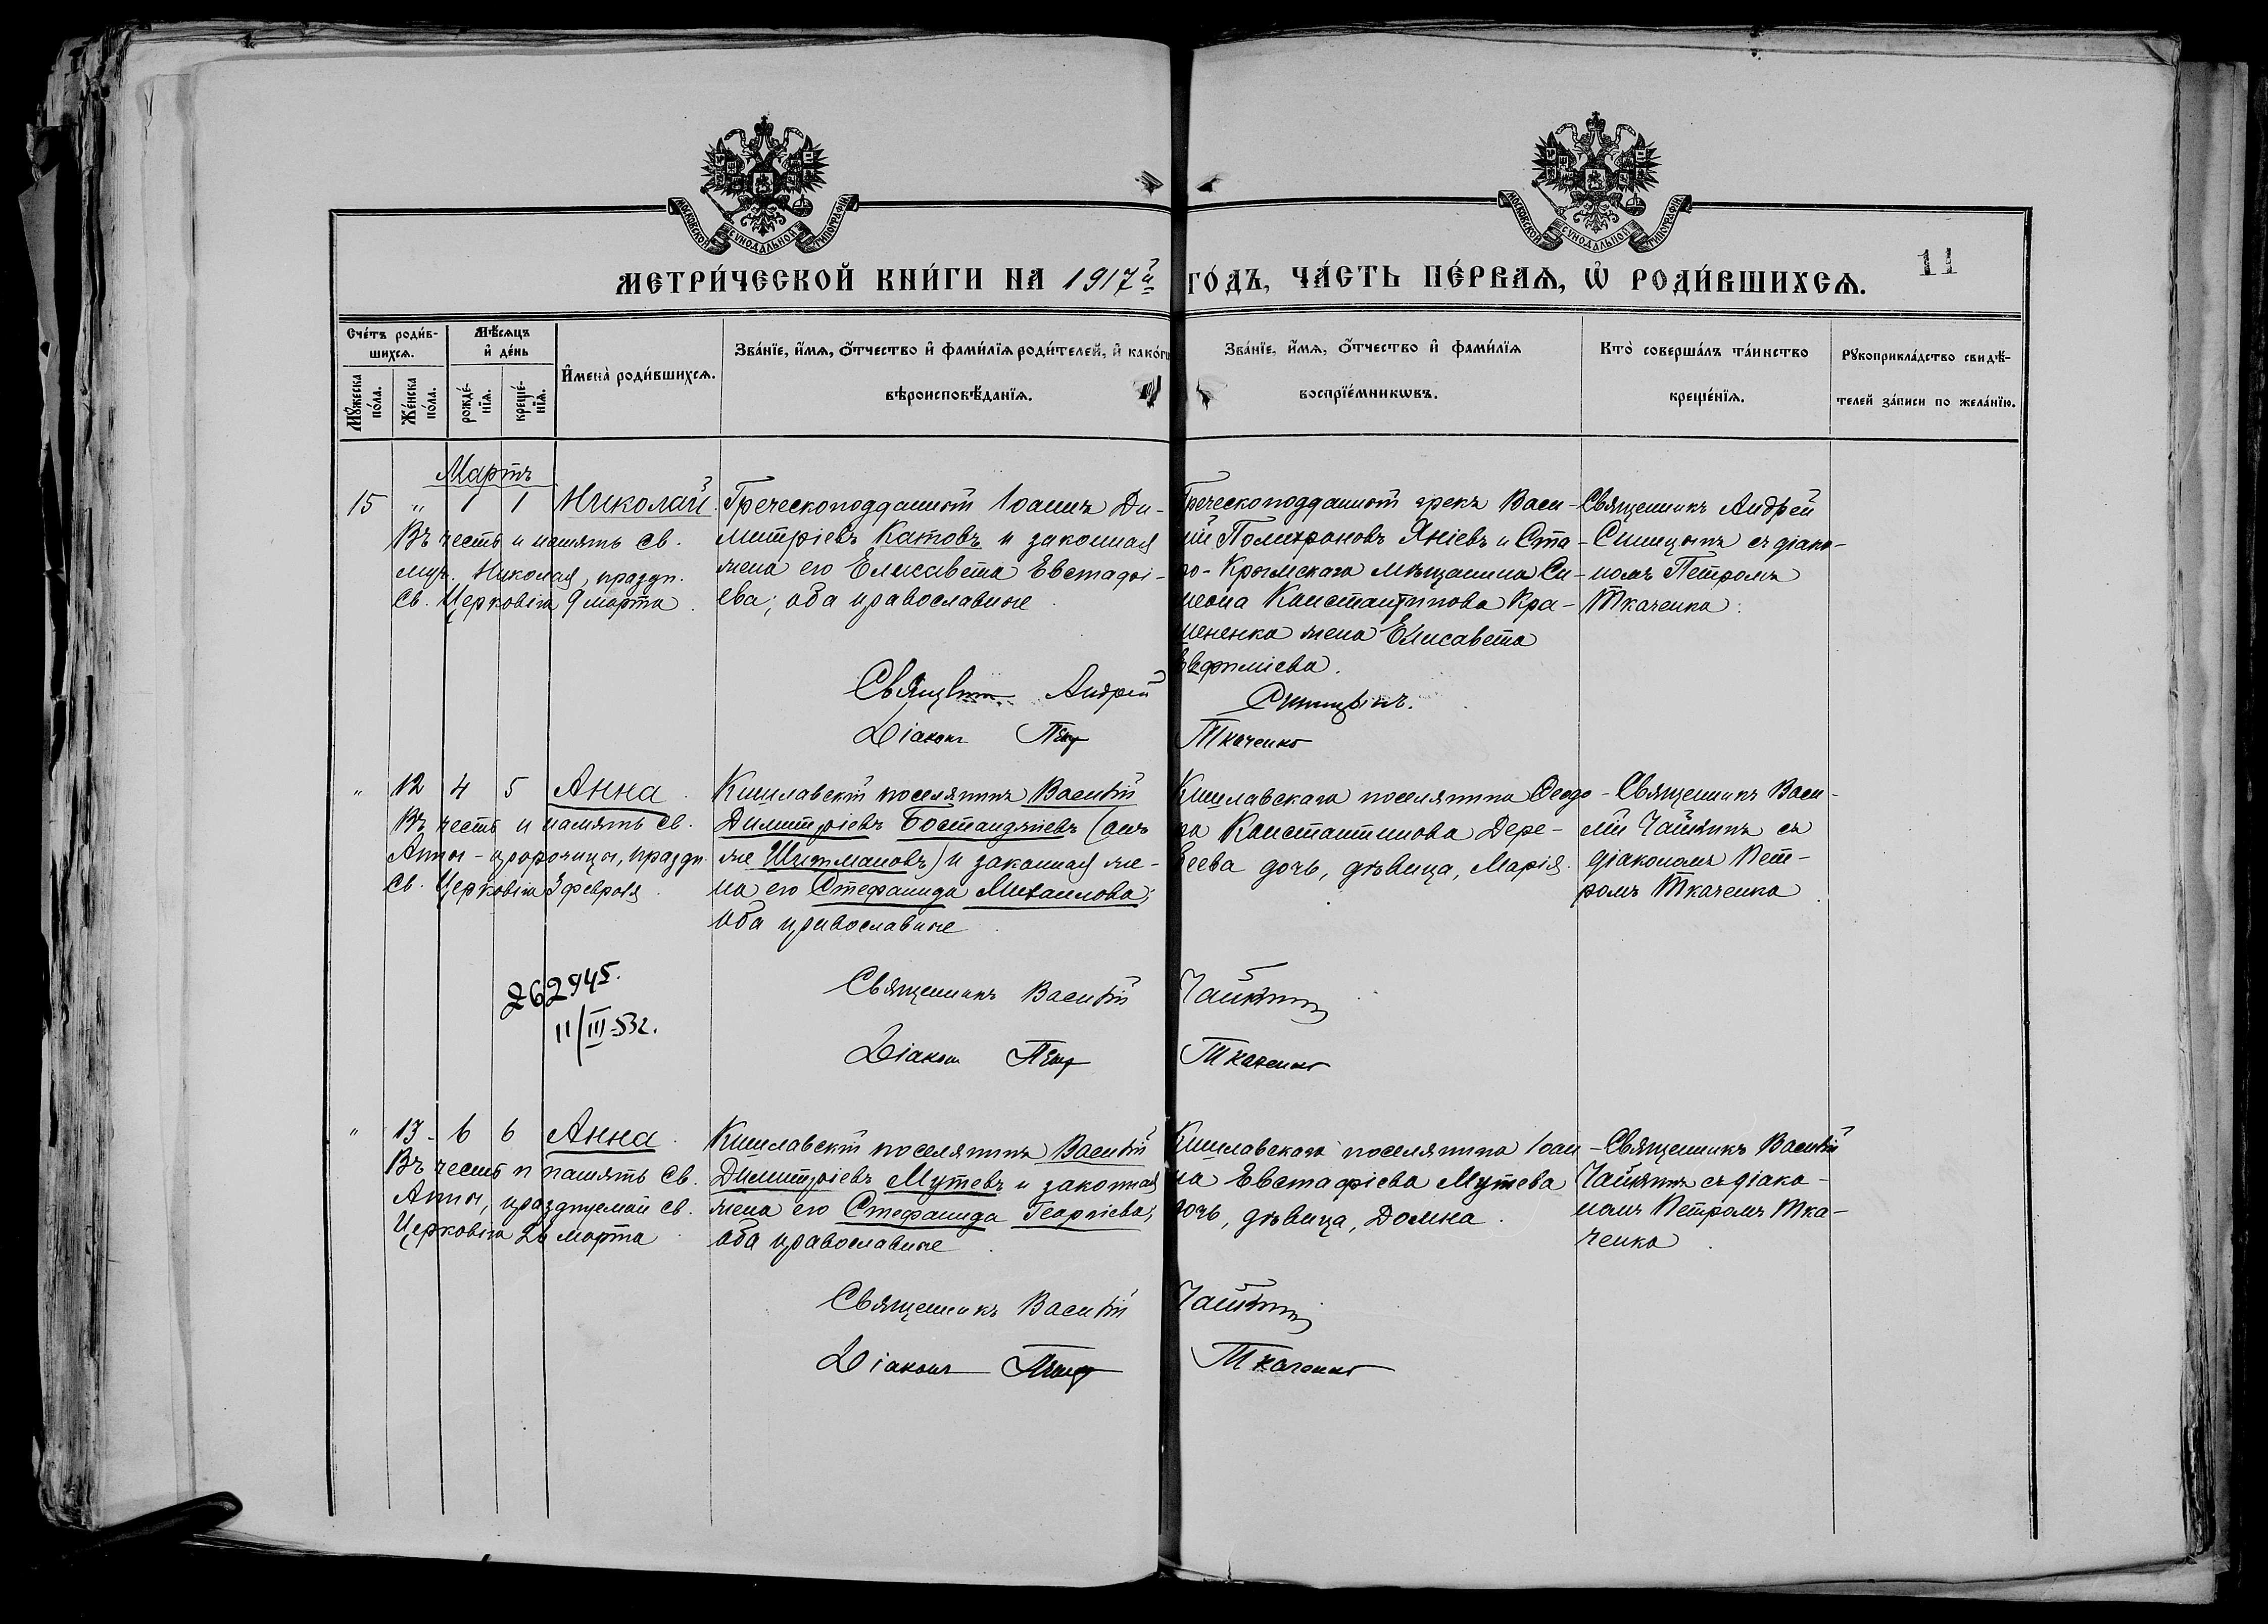 МОСКОВСКОЙ СѴНОДАЛЬНОЙ ТИПОГРАФІИ
МОСКОВСКОЙ СѴНОДАЛЬНОЙ ТИПОГРАФІИ
МЕТРИ́ЧЕСКОЙ КНИ́ГИ НА 1917й ГО́ДЪ, ЧА́СТЬ ПЕ́РВАѦ, Ѡ҆ РОДИ́ВШИХСѦ.
11
Сче́тъ роди́в-
шихсѧ.
Мꙋ́жеска по́ла.
Же́нска по́ла.
Мѣ́сѧцъ
и҆ де́нь
рожде́-
нїѧ.
креще́-
нїѧ.
И҆мена̀ роди́вшихсѧ.
Зва́нїе, и҆́мѧ, ѻ҆́тчество и҆ фами́лїѧ роди́телей, и҆ како́гѡ
вѣроисповѣ́данїѧ.
Зва́нїе, и҆́мѧ, ѻ҆́тчество и҆ фами́лїѧ
воспрїе́мникѡвъ.
Кто̀ соверша́лъ та́инство
креще́нїѧ.
Рꙋкоприкла́дство свидѣ́-
телей за́писи по жела́нїю.
Мартъ
15 " 1 1 Николай.
Въ честь и память св.
муч. Николая, праздн.
св. Церковію 9 марта.
Греческоподданный Іоаннъ Ди-
митріевъ Катовъ и законная
жена его Елисавета Евстафі-
ева; оба православные.
Греческоподданный грекъ Васи-
лій Полихроновъ Яніевъ и Ста-
ро-Крымскаго мѣщанина Си-
меона Константинова Кра-
мененка жена Елисавета
Евфиміева.
Священникъ Андрей
Синицынъ съ діако-
номъ Петромъ
Ткаченко.
Священникъ Андрей Синицынъ.
Діаконъ Петр Ткаченко
" 12 4 5 Анна.
Въ честь и память св.
Анны - пророчицы, праздн.
св. Церковію 3 февраля.
Кишлавскій поселянинъ Василій
Димитріевъ Бостанджіевъ (онъ
же Шишмановъ) и законная же-
на его Стефанида Михаилова;
оба православные.
Кишлавскаго поселянина Ѳеодо-
ра Константинова Дере-
веева дочь, дѣвица, Марія.
Священникъ Васи-
лій Чайкинъ съ
діакономъ Пет-
ромъ Ткаченко.
262945.
11/III-532.
Священникъ Василій Чайкинъ
Діаконъ Петр Ткаченко
" 13. 6 6 Анна.
Въ честь и память св.
Анны, празднуемой св.
Церковію 26 марта.
Кишлавскій поселянинъ Василій
Димитріевъ Мутевъ и законная
жена его Стефанида Георгіева;
оба православные.
Кишлавскаго поселянина Іоан-
на Евстафіева Мутева
дочь, дѣвица, Домна.
Священникъ Василій
Чайкинъ съ діако-
номъ Петромъ Тка-
ченко.
Священникъ Василій Чайкинъ
Діаконъ Петр Ткаченко